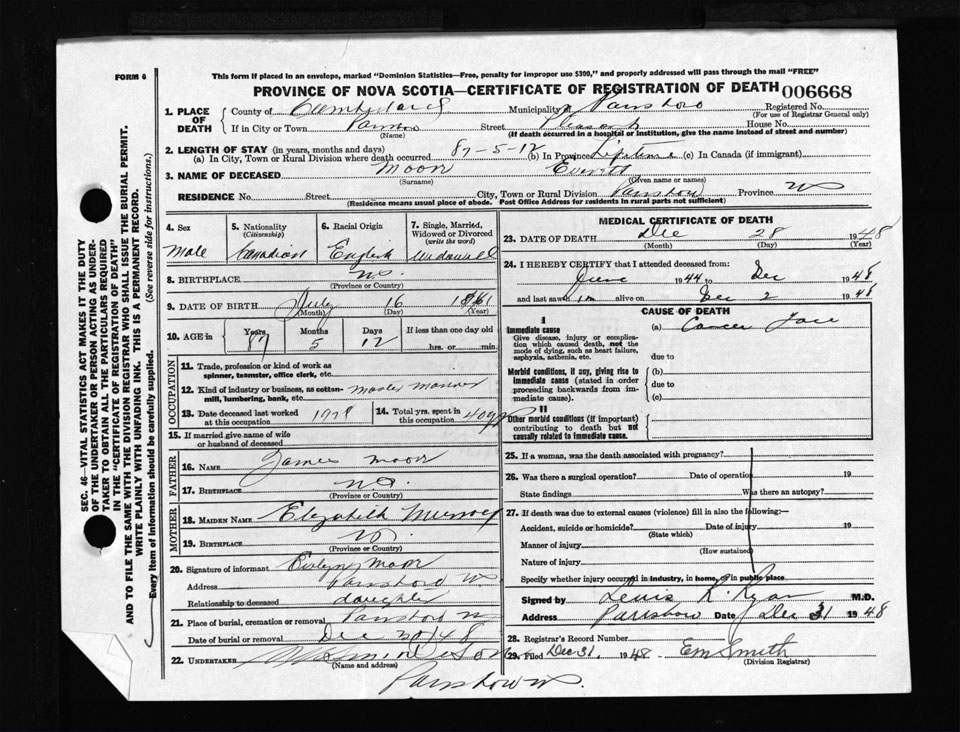 FORM 6
This form if placed in an envelope, marked "Dominion Statistics—Free, penalty for improper use $300," and properly addressed will pass through the mail "FREE"
PROVINCE OF NOVA SCOTIA—CERTIFICATE OF REGISTRATION OF DEATH 006668
1. PLACE OF DEATH
County of Cumberland Municipality Parrsboro Registered No.
(For use of Registrar General only)
If in City or Town Street House No.
(Name) (If death occurred in a hospital or institution, give the name instead of street and number)
2. LENGTH OF STAY (in years, months and days)
(a) In City, Town or Rural Division where death occurred 87-5-12 (b) In Province Lifetime (c) In Canada (if immigrant)
3. NAME OF DECEASED Moon Everett
(Surname) (Given name or names)
RESIDENCE No. Street City, Town or Rural Division Parrsboro Province NS
(Residence means usual place of abode. Post Office Address for residents in rural parts not sufficient)
4. Sex
Male
5. Nationality
(Citizenship)
Canadian
6. Racial Origin
English
7. Single, Married, Widowed or Divorced
(write the word)
Widowed
8. BIRTHPLACE NS
(Province or Country)
9. DATE OF BIRTH July 16 1861
(Month) (Day) (Year)
10. AGE in Years Months Days If less than one day old
87 5 12 hrs. or min.
OCCUPATION
11. Trade, profession or kind of work as
spinner, teamster, office clerk, etc.
12. Kind of industry or business, as cotton-
mill, lumbering, bank, etc. Master Mariner
13. Date deceased last worked
at this occupation 14. Total yrs. spent in
this occupation 40 yrs
15. If married give name of wife
or husband of deceased
FATHER
16. NAME James Moon
17. BIRTHPLACE NS.
(Province or Country)
MOTHER
18. MAIDEN NAME Elizabeth
19. BIRTHPLACE NS.
(Province or Country)
20. Signature of informant Evelyn Moon
Address Parrsboro NS
Relationship to deceased daughter
21. Place of burial, cremation or removal Parrsboro NS
Date of burial or removal Dec 30/48
22. UNDERTAKER
(Name and address)
Parrsboro NS.
MEDICAL CERTIFICATE OF DEATH
23. DATE OF DEATH Dec 28 1948
(Month) (Day) (Year)
24. I HEREBY CERTIFY that I attended deceased from:
June 1944 to Dec 1948
and last saw him alive on Dec 2 1948
CAUSE OF DEATH
I
Immediate cause
Give disease, injury or complica-
tion which caused death, not the
mode of dying, such as heart failure,
asphyxia, asthenia, etc.
(a) Cancer Face
due to
Morbid conditions, if any, giving rise to
immediate cause (stated in order
proceeding backwards from im-
mediate cause).
(b)
due to
(c)
II
Other morbid conditions (if important)
contributing to death but not
causally related to immediate cause.
25. If a woman, was the death associated with pregnancy?
26. Was there a surgical operation? Date of operation 19
State findings Was there an autopsy?
27. If death was due to external causes (violence) fill in also the following:—
Accident, suicide or homicide? Date of injury 19
(State which)
Manner of injury
(How sustained)
Nature of injury
Specify whether injury occurred in industry, in home, or in public place
Signed by Lewis R. Ryan M.D.
Address Parrsboro Date Dec 31 1948
28. Registrar's Record Number
29. Filed Dec 31, 1948 EM Smith
(Division Registrar)
SEC. 46—VITAL STATISTICS ACT MAKES IT THE DUTY
OF THE UNDERTAKER OR PERSON ACTING AS UNDER-
TAKER TO OBTAIN ALL THE PARTICULARS REQUIRED
IN THE "CERTIFICATE OF REGISTRATION OF DEATH"
AND TO FILE THE SAME WITH THE DIVISION REGISTRAR WHO SHALL ISSUE THE BURIAL PERMIT.
WRITE PLAINLY WITH UNFADING INK. THIS IS A PERMANENT RECORD.
Every item of information should be carefully supplied. (See reverse side for instructions.)